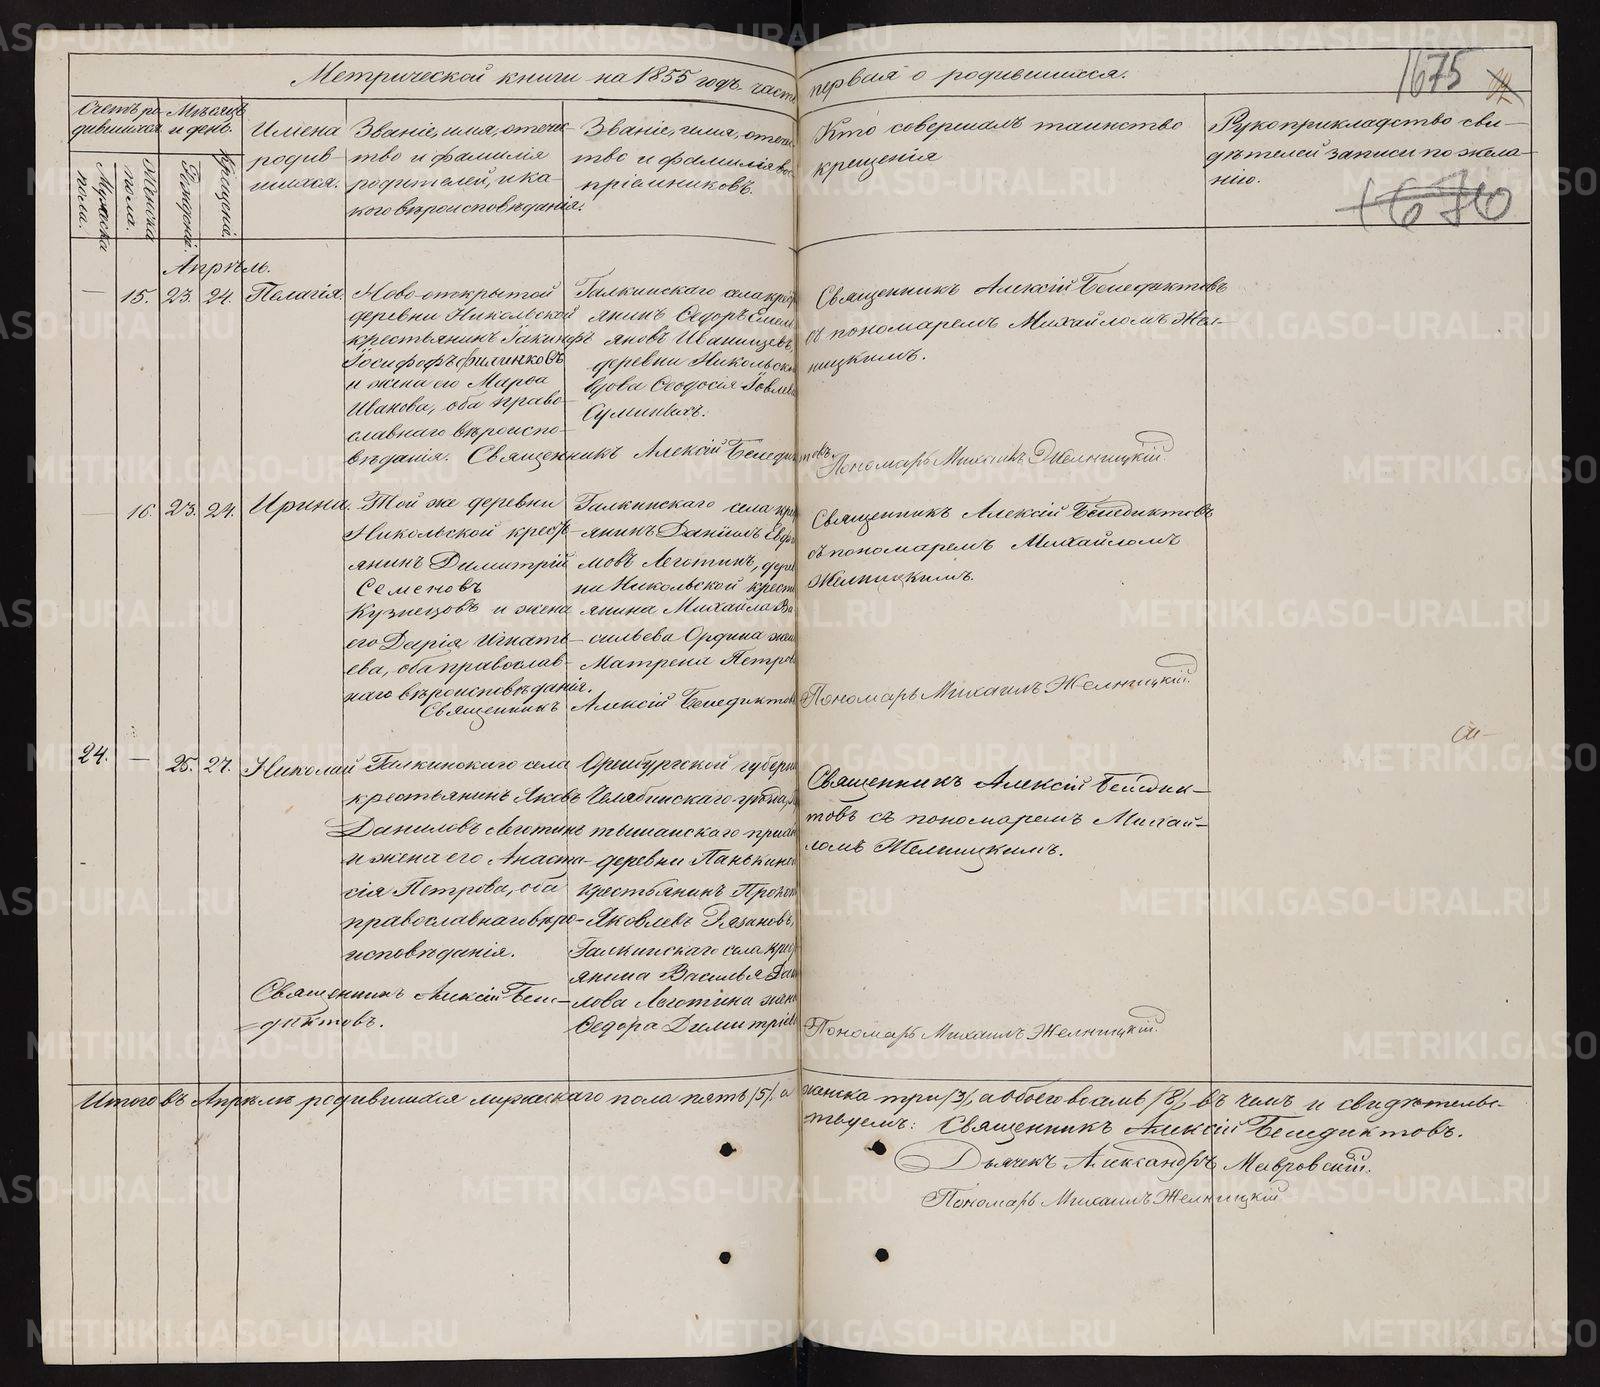 Метрической книги на 1855 годъ часть первая о родившихся.
1675
1670
Счетъ ро-
дившихся
Мѣсяцъ
и день.
Мужеска
пола.
Женска
пола.
Рожденія.
Крещенія.
Имена
родив-
шихся.
Званіе, имя, отечес-
тво и фамилія
родителей, и ка-
кого вѣроисповѣданія.
Званіе, имя, отечес
тво и фамилія вос
пріемниковъ.
Кто совершалъ таинство
крещенія
Рукоприкладство сви-
дѣтелей записи по жела-
нію.
Апрѣль.
— 15. 23. 24. Пелагія.
Ново-открытой
деревни Никольской
крестьянинъ Іакинфъ
Іосифофъ Филинковъ
и жена его Марѳа
Иванова, оба право-
славнаго вѣроиспо-
вѣданія. Священникъ Алексій Бенедиктовъ
Галкинскаго села крес
янинъ Ѳедоръ Емел
яновъ Иванищевъ,
деревни Никольской
вдова Ѳеодосія Іовлева
Суминыхъ.
Священникъ Алексій Бенедиктовъ
съ пономаремъ Михайломъ Жел-
ницкимъ.
Пономарь Михаилъ Желницкій
— 16. 23. 24. Ирина.
Той же деревни
Никольской кресть-
янинъ Димитрій
Семеновъ
Кузнецовъ и жена
его Дарія Игнать-
ева, оба православ-
наго вѣроисповѣданія.
Священникъ Алексій Бенедиктовъ
Галкинскаго села крес
янинъ Даніилъ Евфи
мовъ Леготинъ, дерев
ни Никольской кресть
янина Михайла Ва
сильева Орфина жена
Матрена Петрова
Священникъ Алексій Бенедиктовъ
съ пономаремъ Михайломъ
Желницкимъ.
Пономарь Михаилъ Желницкій.
24. — 25. 27. Николай
Галкинскаго села
крестьянинъ Яковъ
Даниловъ Леготинъ
и жена его Анаста-
сія Петрова, оба
православнаго вѣро-
исповѣданія.
Священникъ Алексій Бене-
диктовъ.
Оренбургской губерніи
Челябинскаго уѣзда,
деревни Панькиной
крестьянинъ Прокоп
Яковлевъ Рязановъ,
Галкинскаго села крес
янина Василья Дани
лова Леготина жена
Ѳедора Димитріева
Священникъ Алексій Бенедик-
товъ съ пономаремъ Михай-
ломъ Желницкимъ.
Пономарь Михаилъ Желницкій.
Итого въ Апрѣлѣ родившихся мужескаго пола пять /5/, а женска три /3/, а обоего восемь /8/, въ чемъ и свидѣтельс-
твуемъ: Священникъ Алексій Бенедиктовъ.
Дьячекъ Александръ Мавровскій.
Пономарь Михаилъ Желницкій
METRIKI.GASO-URAL.RU